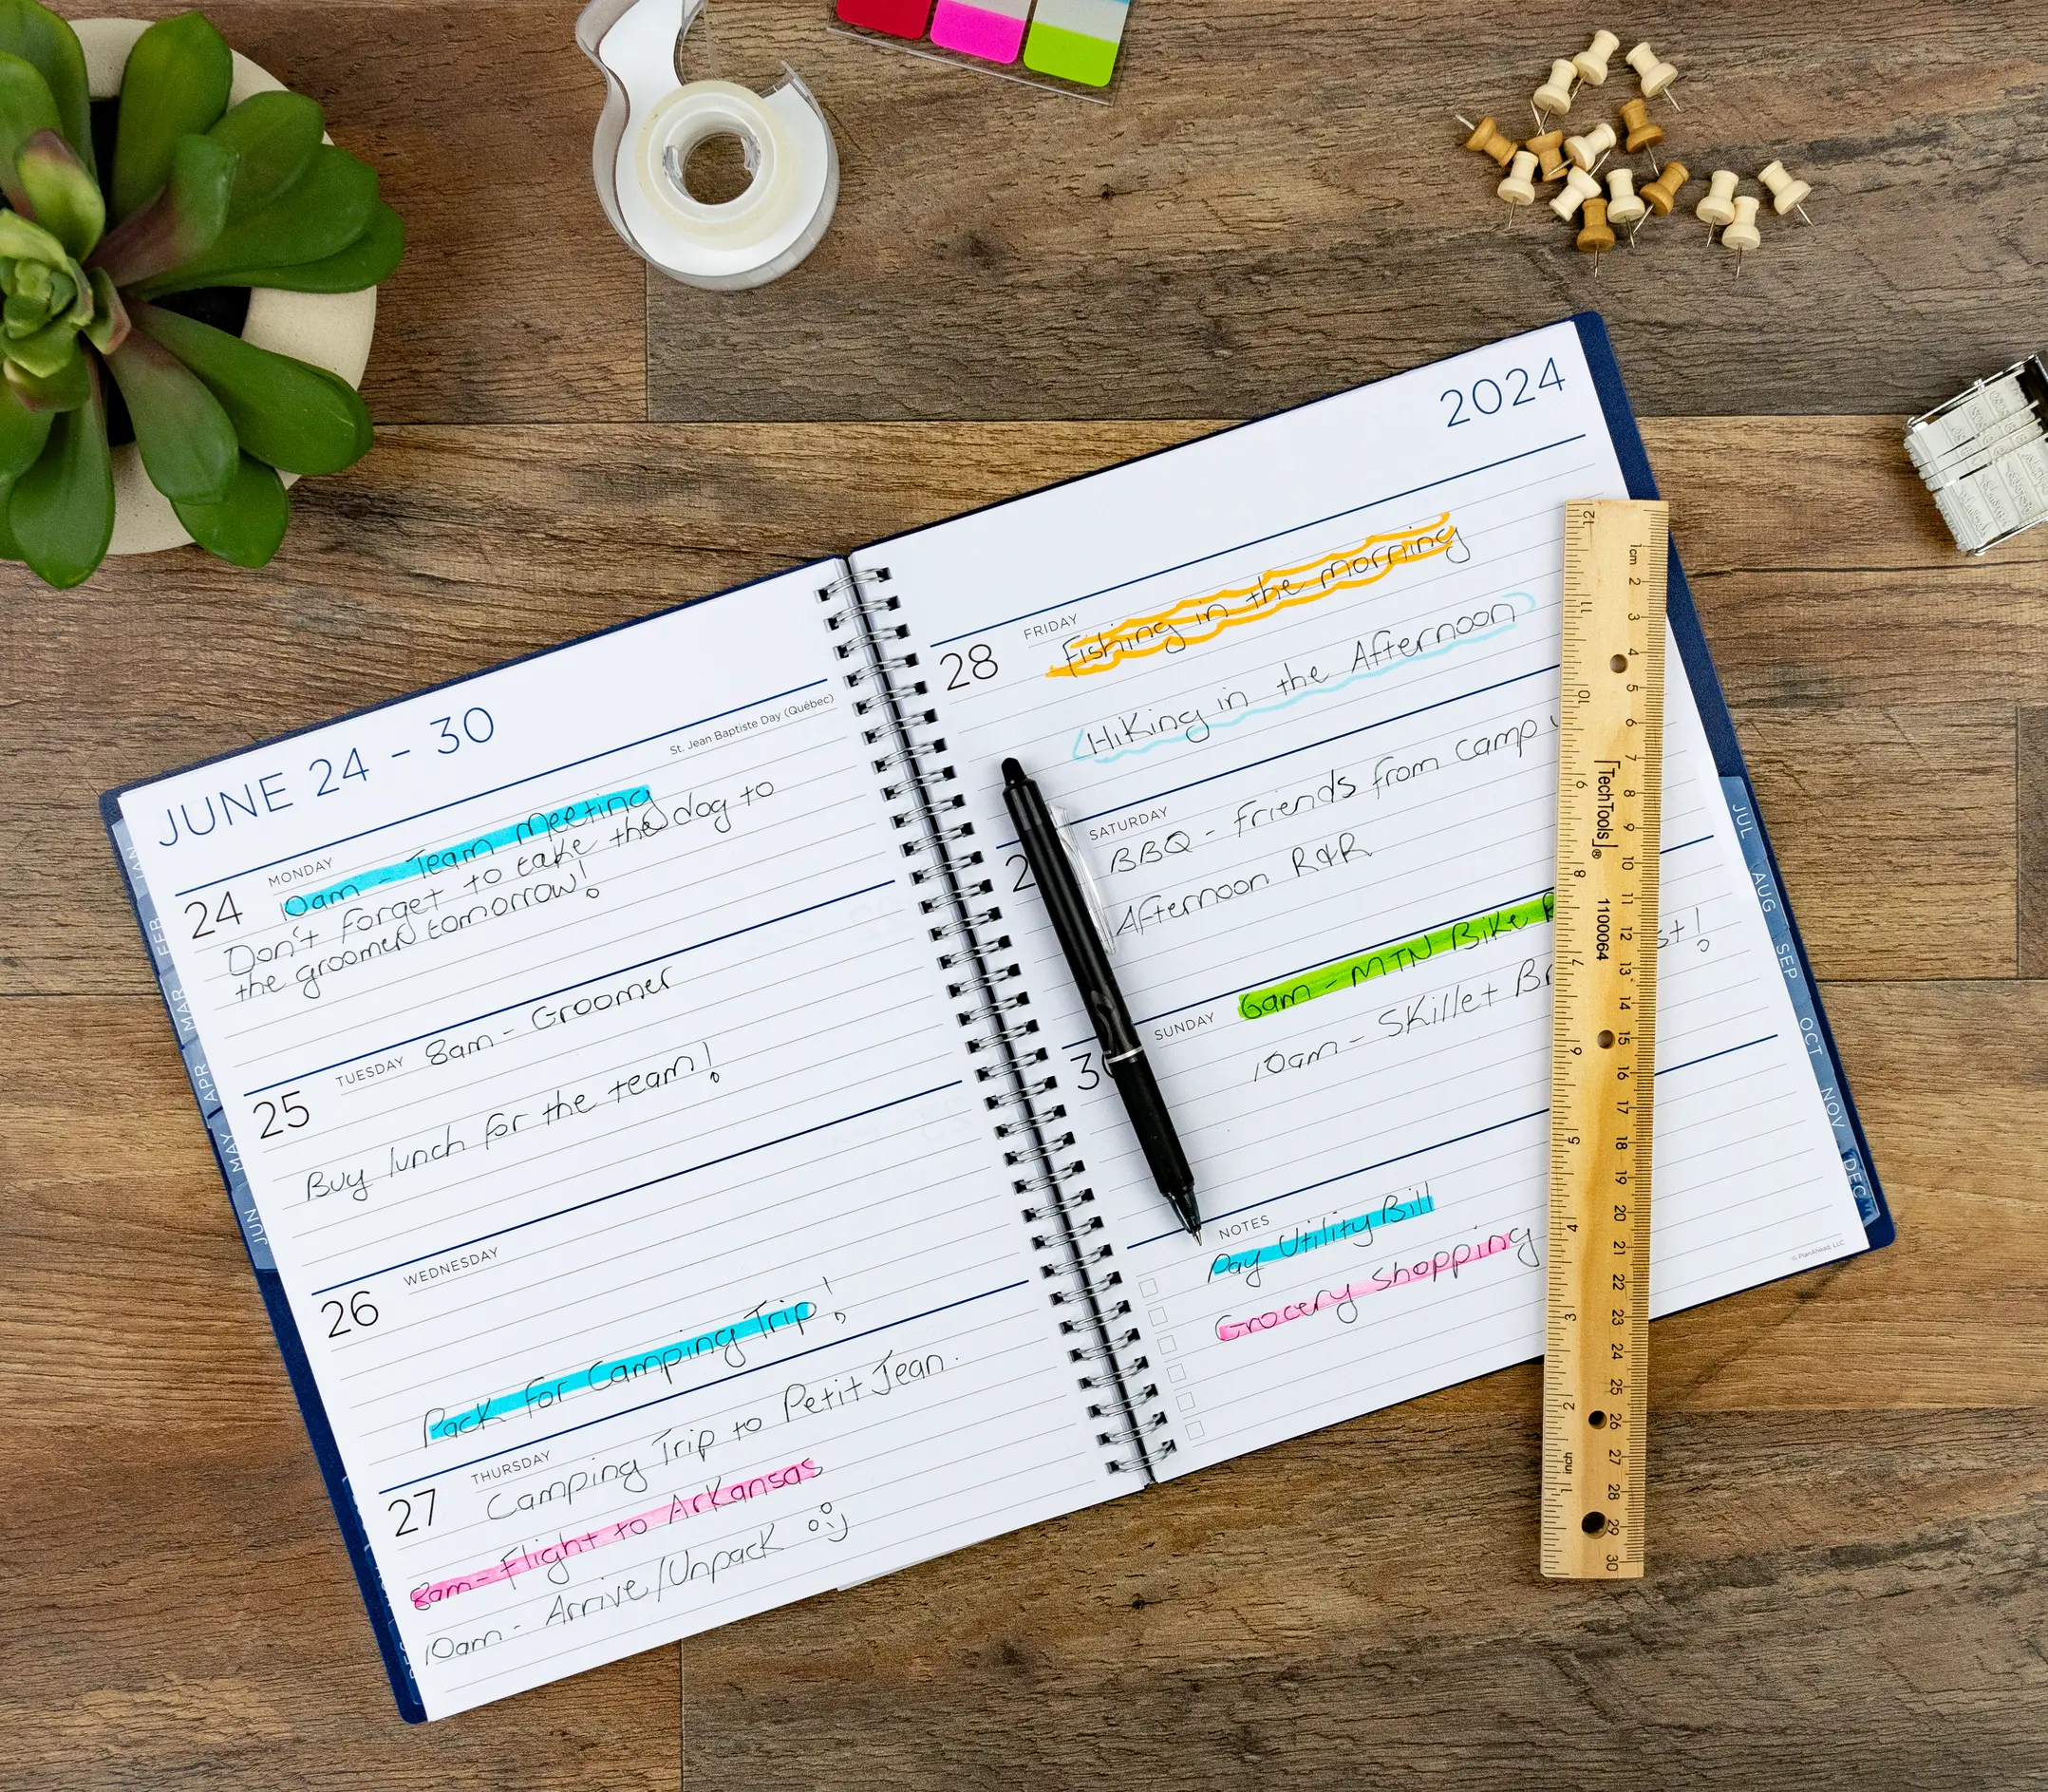 JUNE 24 - 30
St. Jean Baptiste Day (Québec)
MONDAY
24
10am - Team Meeting
Don't forget to take the dog to
the groomer tomorrow!
TUESDAY
25
8am - Groomer
Buy lunch for the team!
WEDNESDAY
26
Pack for Camping Trip!
THURSDAY
27
Camping Trip to Petit Jean.
8am - Flight to Arkansas
10am - Arrive/Unpack
JAN
FEB
MAR
APR
MAY
JUN
2024
FRIDAY
28
Fishing in the morning
Hiking in the Afternoon
SATURDAY
2
BBQ - Friends from camp
Afternoon R&R
SUNDAY
30
6am - MTN Bike
10am - Skillet
NOTES
Pay Utility Bill
Grocery Shopping
© PlanAhead, LLC
JUL
AUG
SEP
OCT
NOV
DEC
TechTools®
1100064
1cm 2 3 4 5 6 7 8 9 10 11 12 13 14 15 16 17 18 19 20 21 22 23 24 25 26 27 28 29 30
12 11 10 9 8 7 6 5 4 3 2 inch